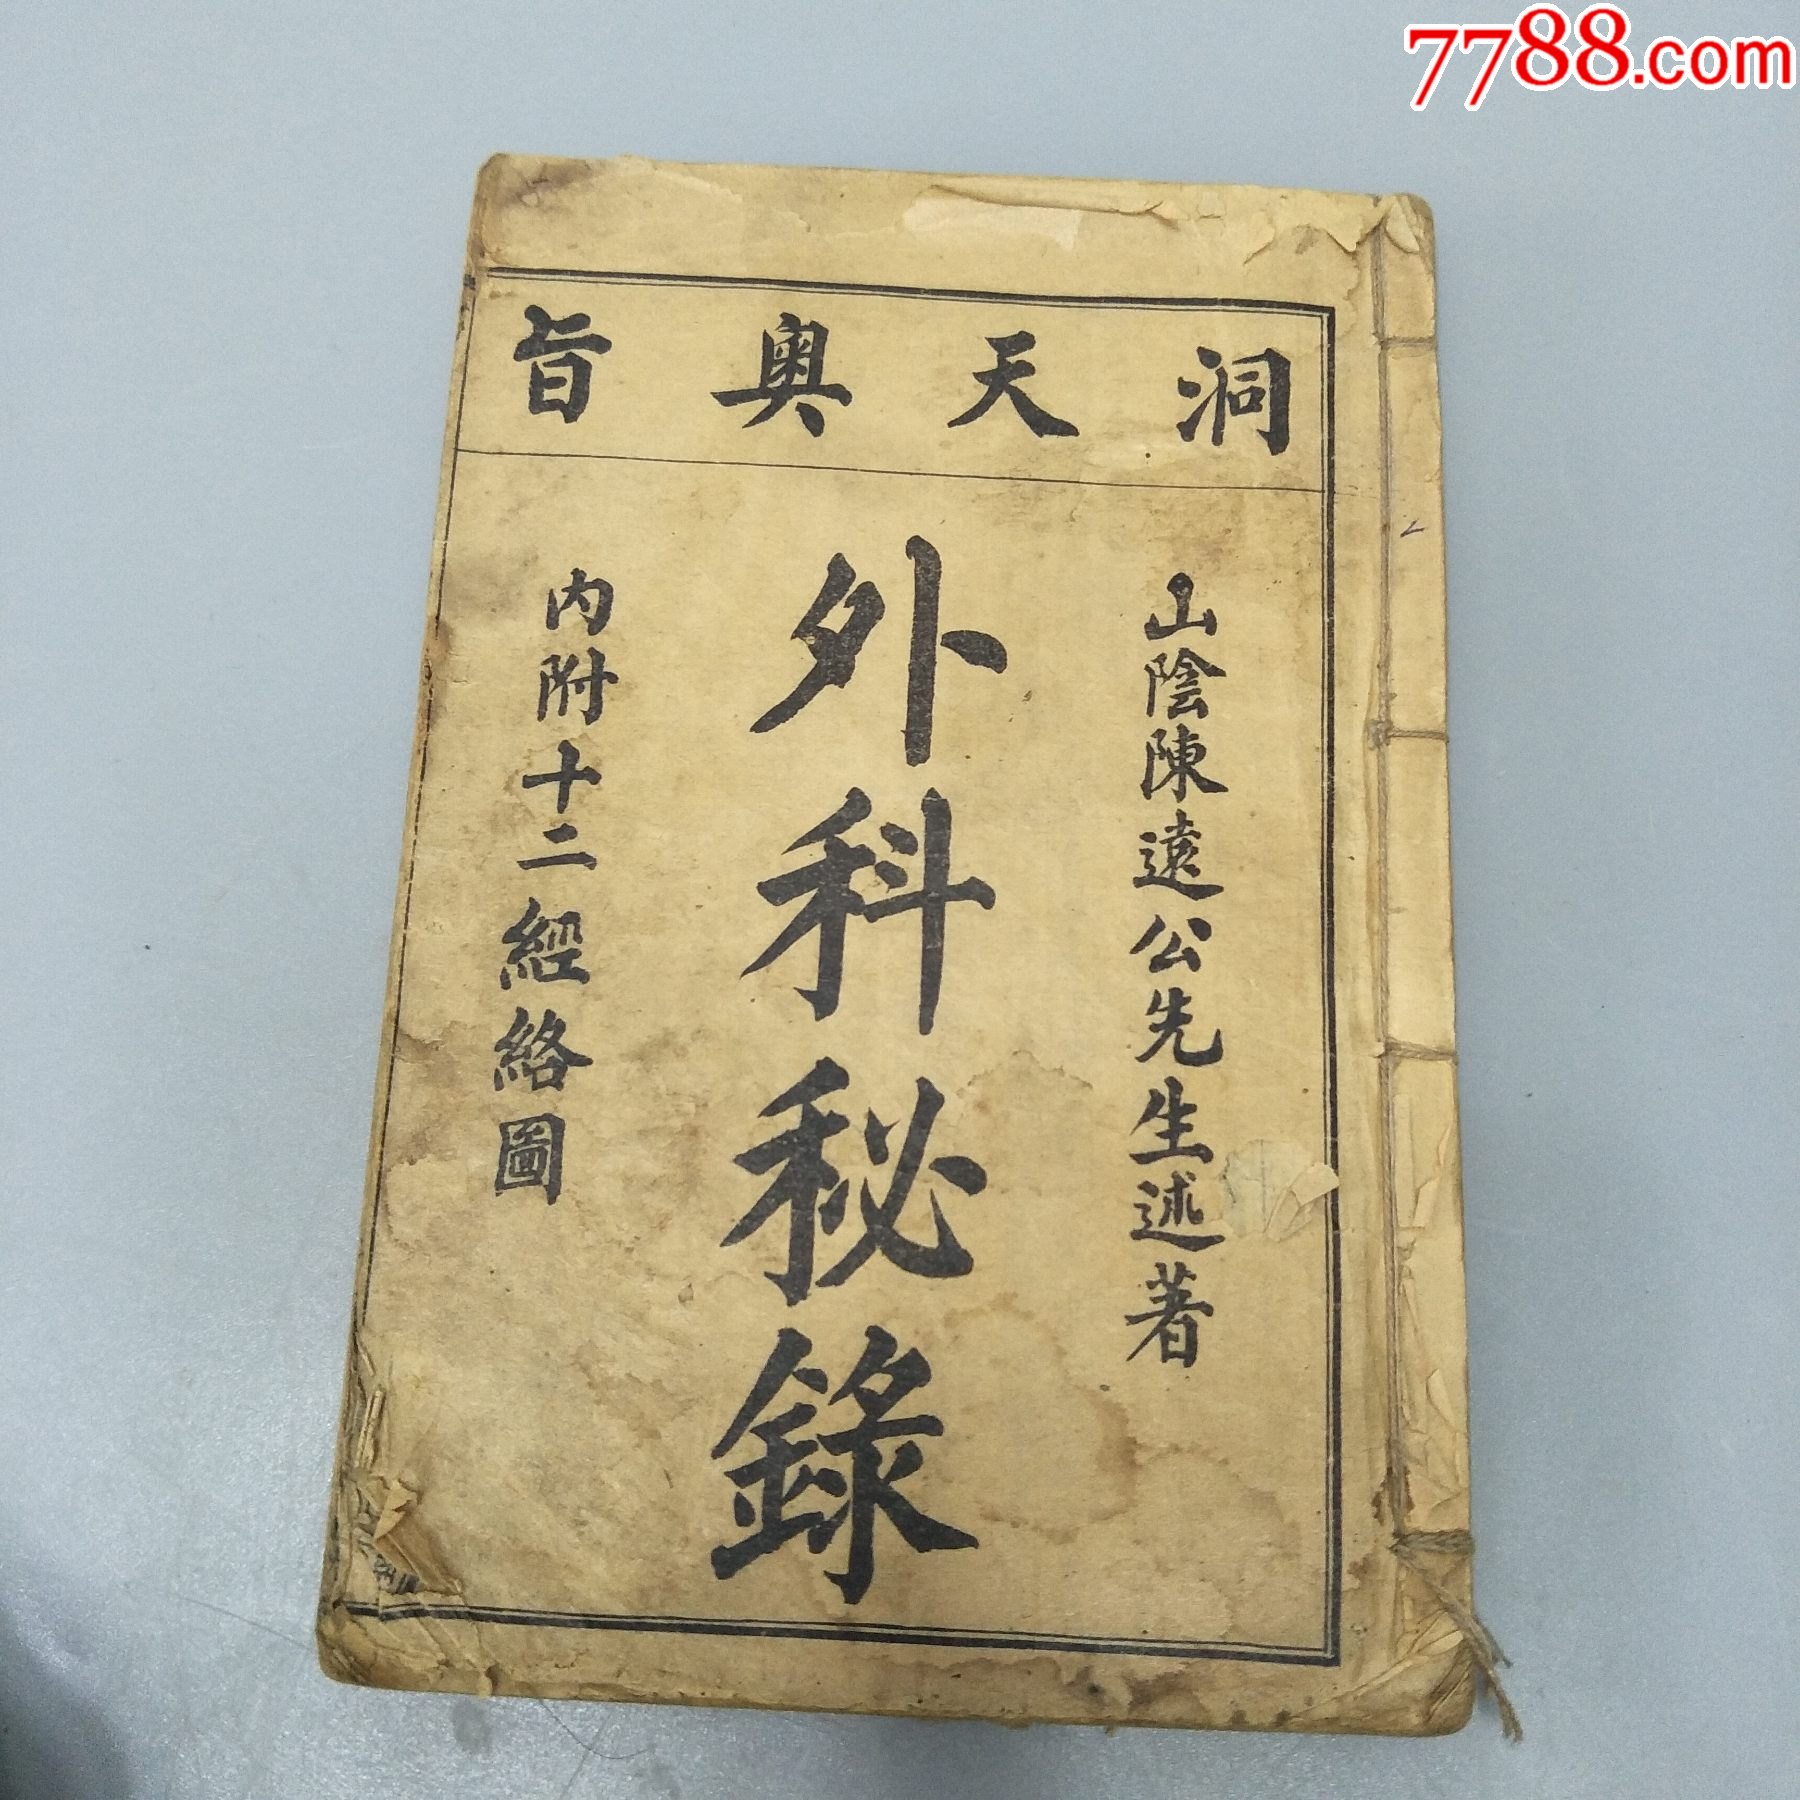 7788.com
洞天奥旨
山陰陳遠公先生述著
外科秘錄
内附十二經絡圖